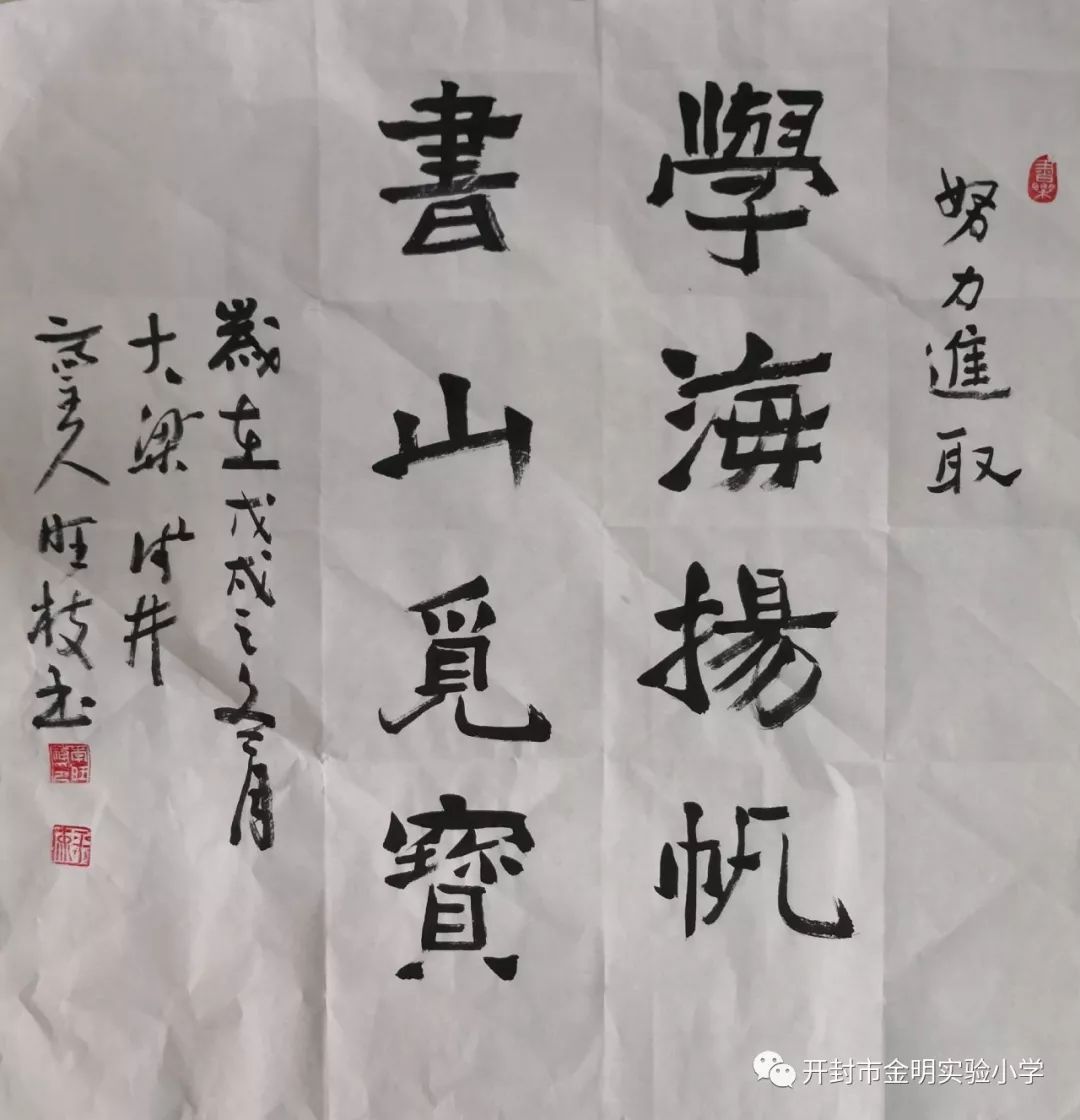 努力進取
學海揚帆
書山覓寶
歲在戊戌之冬月
大梁 井
主人旺枝书
开封市金明实验小学